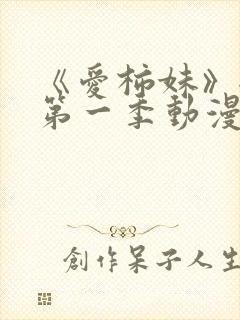 《愛柿妹》
第一季動漫
創作呆子人生